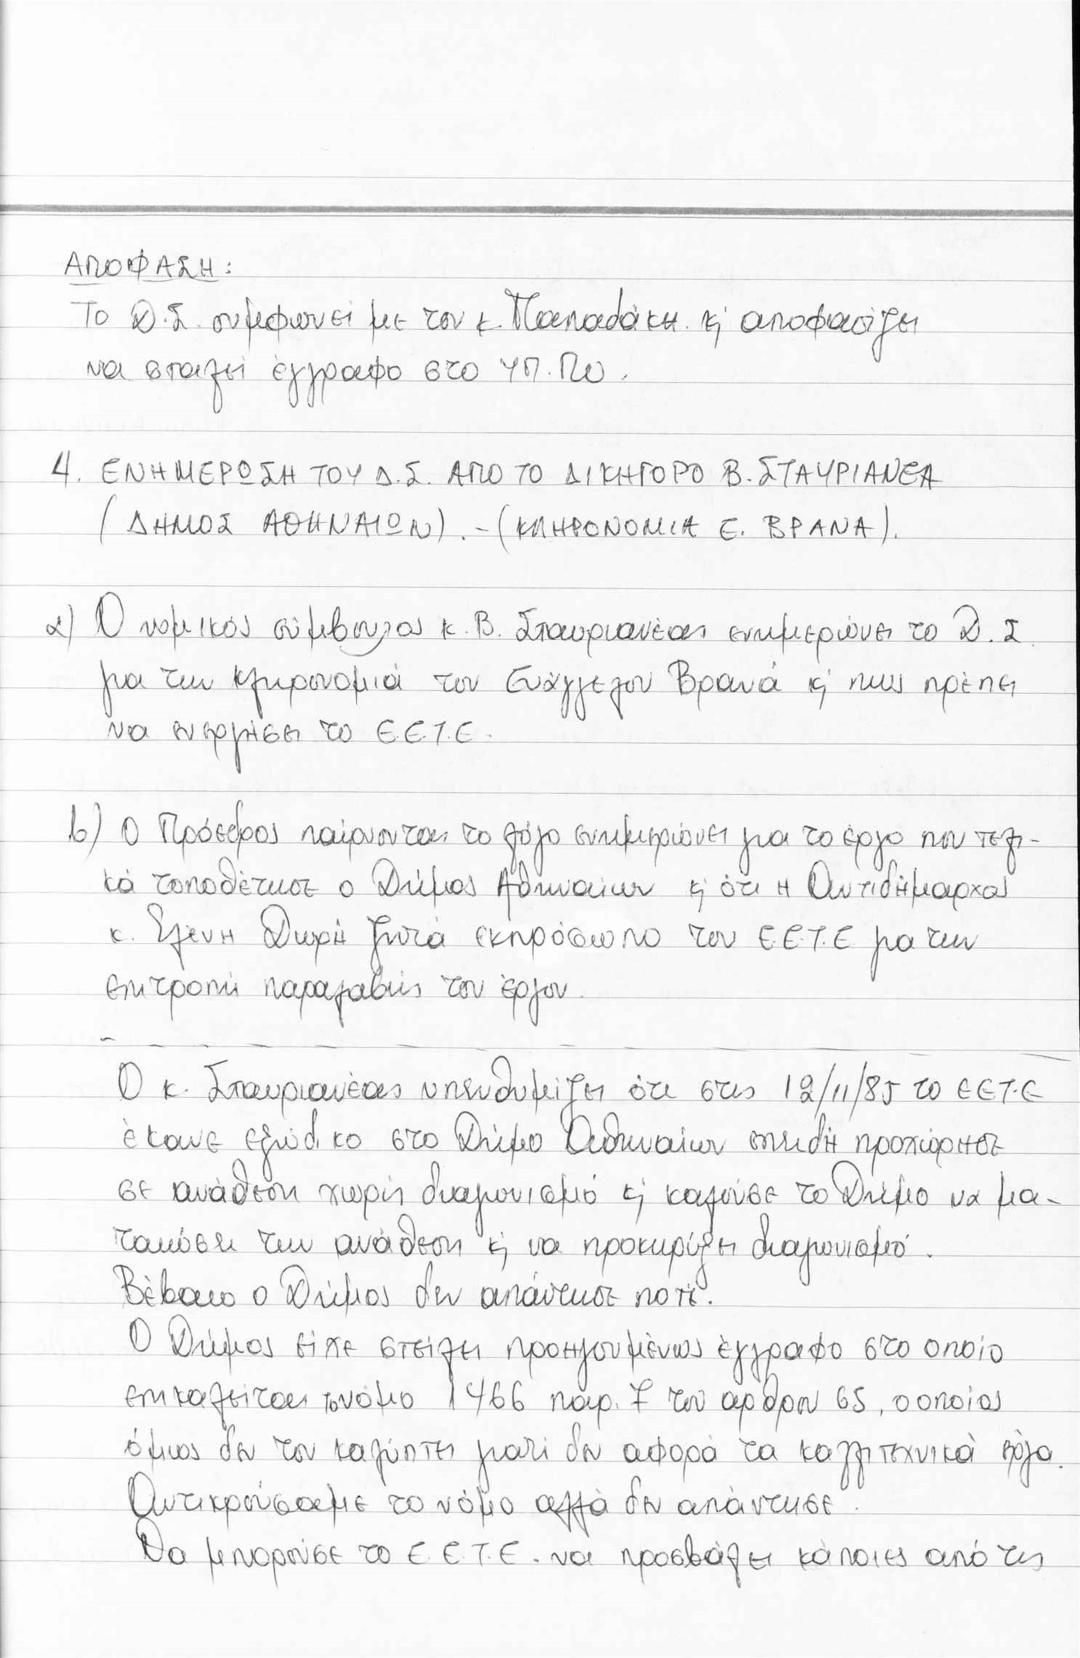 ΑΠΟΦΑΣΗ:
Το Δ.Σ. συμφωνεί με τον κ. Παπαδάκη κ αποφασίζει
να σταλεί έγγραφο στο ΥΠ.ΠΟ.
4. ΕΝΗΜΕΡΩΣΗ ΤΟΥ Δ.Σ. ΑΠΟ ΤΟ ΔΙΚΗΓΟΡΟ Β. ΣΤΑΥΡΙΑΝΕΑ
(ΔΗΜΟΣ ΑΘΗΝΑΙΩΝ).-(ΚΛΗΡΟΝΟΜΙΑ Ε. ΒΡΑΝΑ).
α) Ο νομικός σύμβουλος κ. Β. Σταυριανέας ενημερώνει το Δ.Σ
για την κληρονομιά του Ευάγγελου Βρανά κ πως πρέπει
να ενεργήσει το Ε.Ε.Τ.Ε.
b) Ο Πρόεδρος παίρνοντας το λόγο ενημερώνει για το έργο που τελι-
κά τοποθέτησε ο Δήμος Αθηναίων κ ότι η Αντιδήμαρχος
κ. Ελένη Δωρή ζητά εκπρόσωπο του Ε.Ε.Τ.Ε για την
επιτροπή παραλαβής του έργου.
Ο κ. Σταυριανέας υπενθυμίζει ότι στις 12/11/85 το Ε.Ε.Τ.Ε
έκανε εξώδικο στο Δήμο Αθηναίων επειδή προχώρησε
σε ανάθεση χωρίς διαγωνισμό κ καλούσε το Δήμο να μα-
ταιώσει την ανάθεση κ να προκυρήξει διαγωνισμό.
Βέβαια ο Δήμος δεν απάντησε ποτέ.
Ο Δήμος είχε στείλει προηγουμένως έγγραφο στο οποίο
επικαλείται το νόμο 1466 παρ. 7 του αρθρου 65, ο οποίος
όμως δεν τον καλύπτει γιατί δεν αφορά τα καλλιτεχνικά έργα.
Αντικρούσαμε το νόμο αλλά δεν απάντησε.
Θα μπορούσε το Ε.Ε.Τ.Ε. να προσβάλει κάποιες από τις